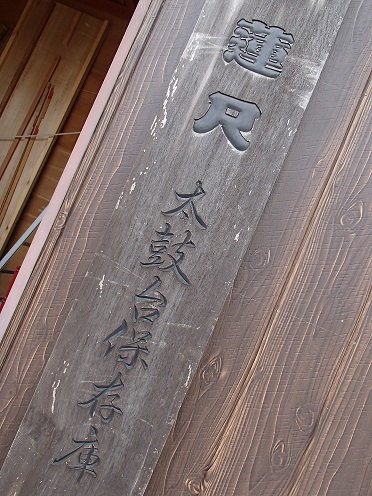 蓮尺
太鼓台保存庫